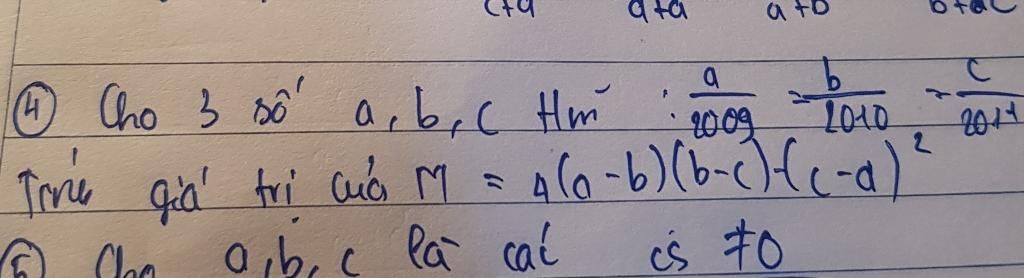 c+a a+a a+b b+ac
④ Cho 3 số a, b, c t/m : a/2009 = b/2010 = c/2011
Tính giá trị của M = 4(a-b)(b-c)-(c-a)²
⑤ Cho a, b, c là các cs ≠0